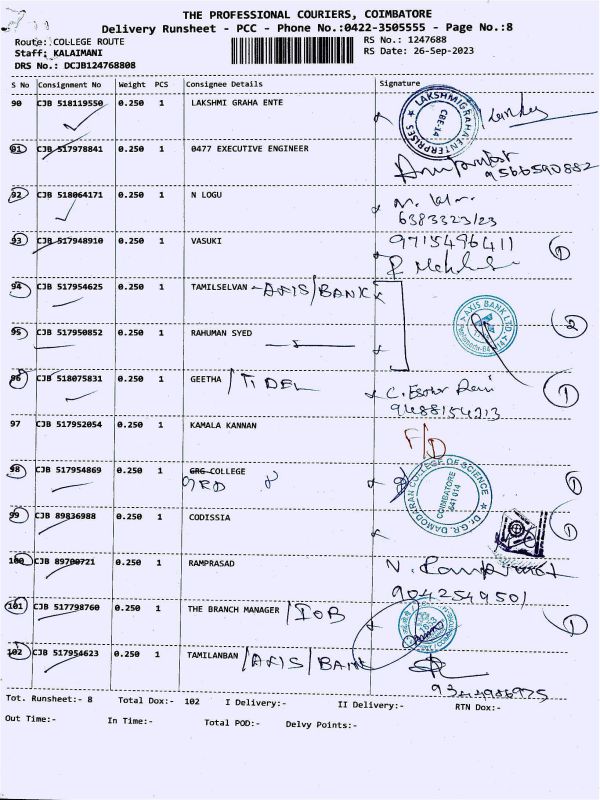 THE PROFESSIONAL COURIERS, COIMBATORE
Delivery Runsheet - PCC - Phone No.:0422-3505555 - Page No.:8
Route: COLLEGE ROUTE
RS No.: 1247688
Staff: KALAIMANI
RS Date: 26-Sep-2023
DRS No.: DCJB124768808
S No Consignment No Weight PCS Consignee Details Signature
90 CJB 518119550 0.250 1 LAKSHMI GRAHA ENTE
LAKSHMI GRAHA ENTERPRISES
CBE-14
91 CJB 517978841 0.250 1 0477 EXECUTIVE ENGINEER
9566590882
92 CJB 518064171 0.250 1 N LOGU
6383323123
93 CJB 517948910 0.250 1 VASUKI 9715496411
1
94 CJB 517954625 0.250 1 TAMILSELVAN - AXIS/BANK
AXIS BANK LTD.
2
95 CJB 517950852 0.250 1 RAHUMAN SYED
96 CJB 518075831 0.250 1 GEETHA /TIDEL
1
9488154213
97 CJB 517952054 0.250 1 KAMALA KANNAN
F/D
98 CJB 517954869 0.250 1 GRG COLLEGE
GRD
Dr.G.R. DAMODARAN COLLEGE OF SCIENCE
COIMBATORE
641 014
1
99 CJB 89836988 0.250 1 CODISSIA
1
100 CJB 89700721 0.250 1 RAMPRASAD
9042549501
101 CJB 517798760 0.250 1 THE BRANCH MANAGER /IOB
1
102 CJB 517954623 0.250 1 TAMILANBAN /AXIS/BANK
Tot. Runsheet:- 8 Total Dox:- 102 I Delivery:- II Delivery:- RTN Dox:-
Out Time:- In Time:- Total POD:- Delvy Points:-